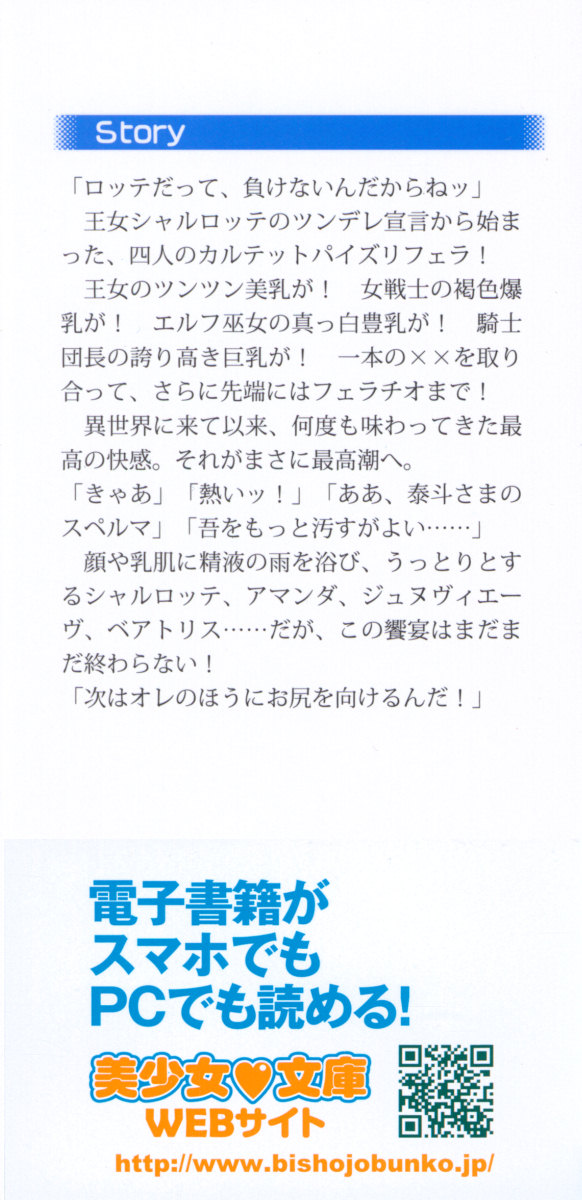 Story
「ロッテだって、負けないんだからねッ」
王女シャルロッテのツンデレ宣言から始ま
った、四人のカルテットパイズリフェラ！
王女のツンツン美乳が！　女戦士の褐色爆
乳が！　エルフ巫女の真っ白豊乳が！　騎士
団長の誇り高き巨乳が！　一本の××を取り
合って、さらに先端にはフェラチオまで！
異世界に来て以来、何度も味わってきた最
高の快感。それがまさに最高潮へ。
「きゃあ」「熱いッ！」「ああ、泰斗さまの
スペルマ」「吾をもっと汚すがよい……」
顔や乳肌に精液の雨を浴び、うっとりとす
るシャルロッテ、アマンダ、ジュヌヴィエー
ヴ、ベアトリス……だが、この饗宴はまだま
だ終わらない！
「次はオレのほうにお尻を向けるんだ！」
電子書籍が
スマホでも
PCでも読める!
美少女♥文庫
WEBサイト
http://www.bishojobunko.jp/